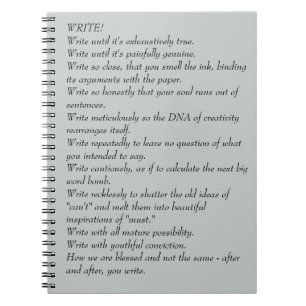 WRITE!
Write until it's exhaustively true.
Write until it's painfully genuine.
Write so close, that you smell the ink, binding
its arguments with the paper.
Write so honestly that your soul runs out of
sentences.
Write meticulously so the DNA of creativity
rearranges itself.
Write repeatedly to leave no question of what
you intended to say.
Write cautiously, as if to calculate the next big
word bomb.
Write recklessly to shatter the old ideas of
"can't" and melt them into beautiful
inspirations of "must."
Write with all mature possibility.
Write with youthful conviction.
How we are blessed and not the same - after
and after, you write.